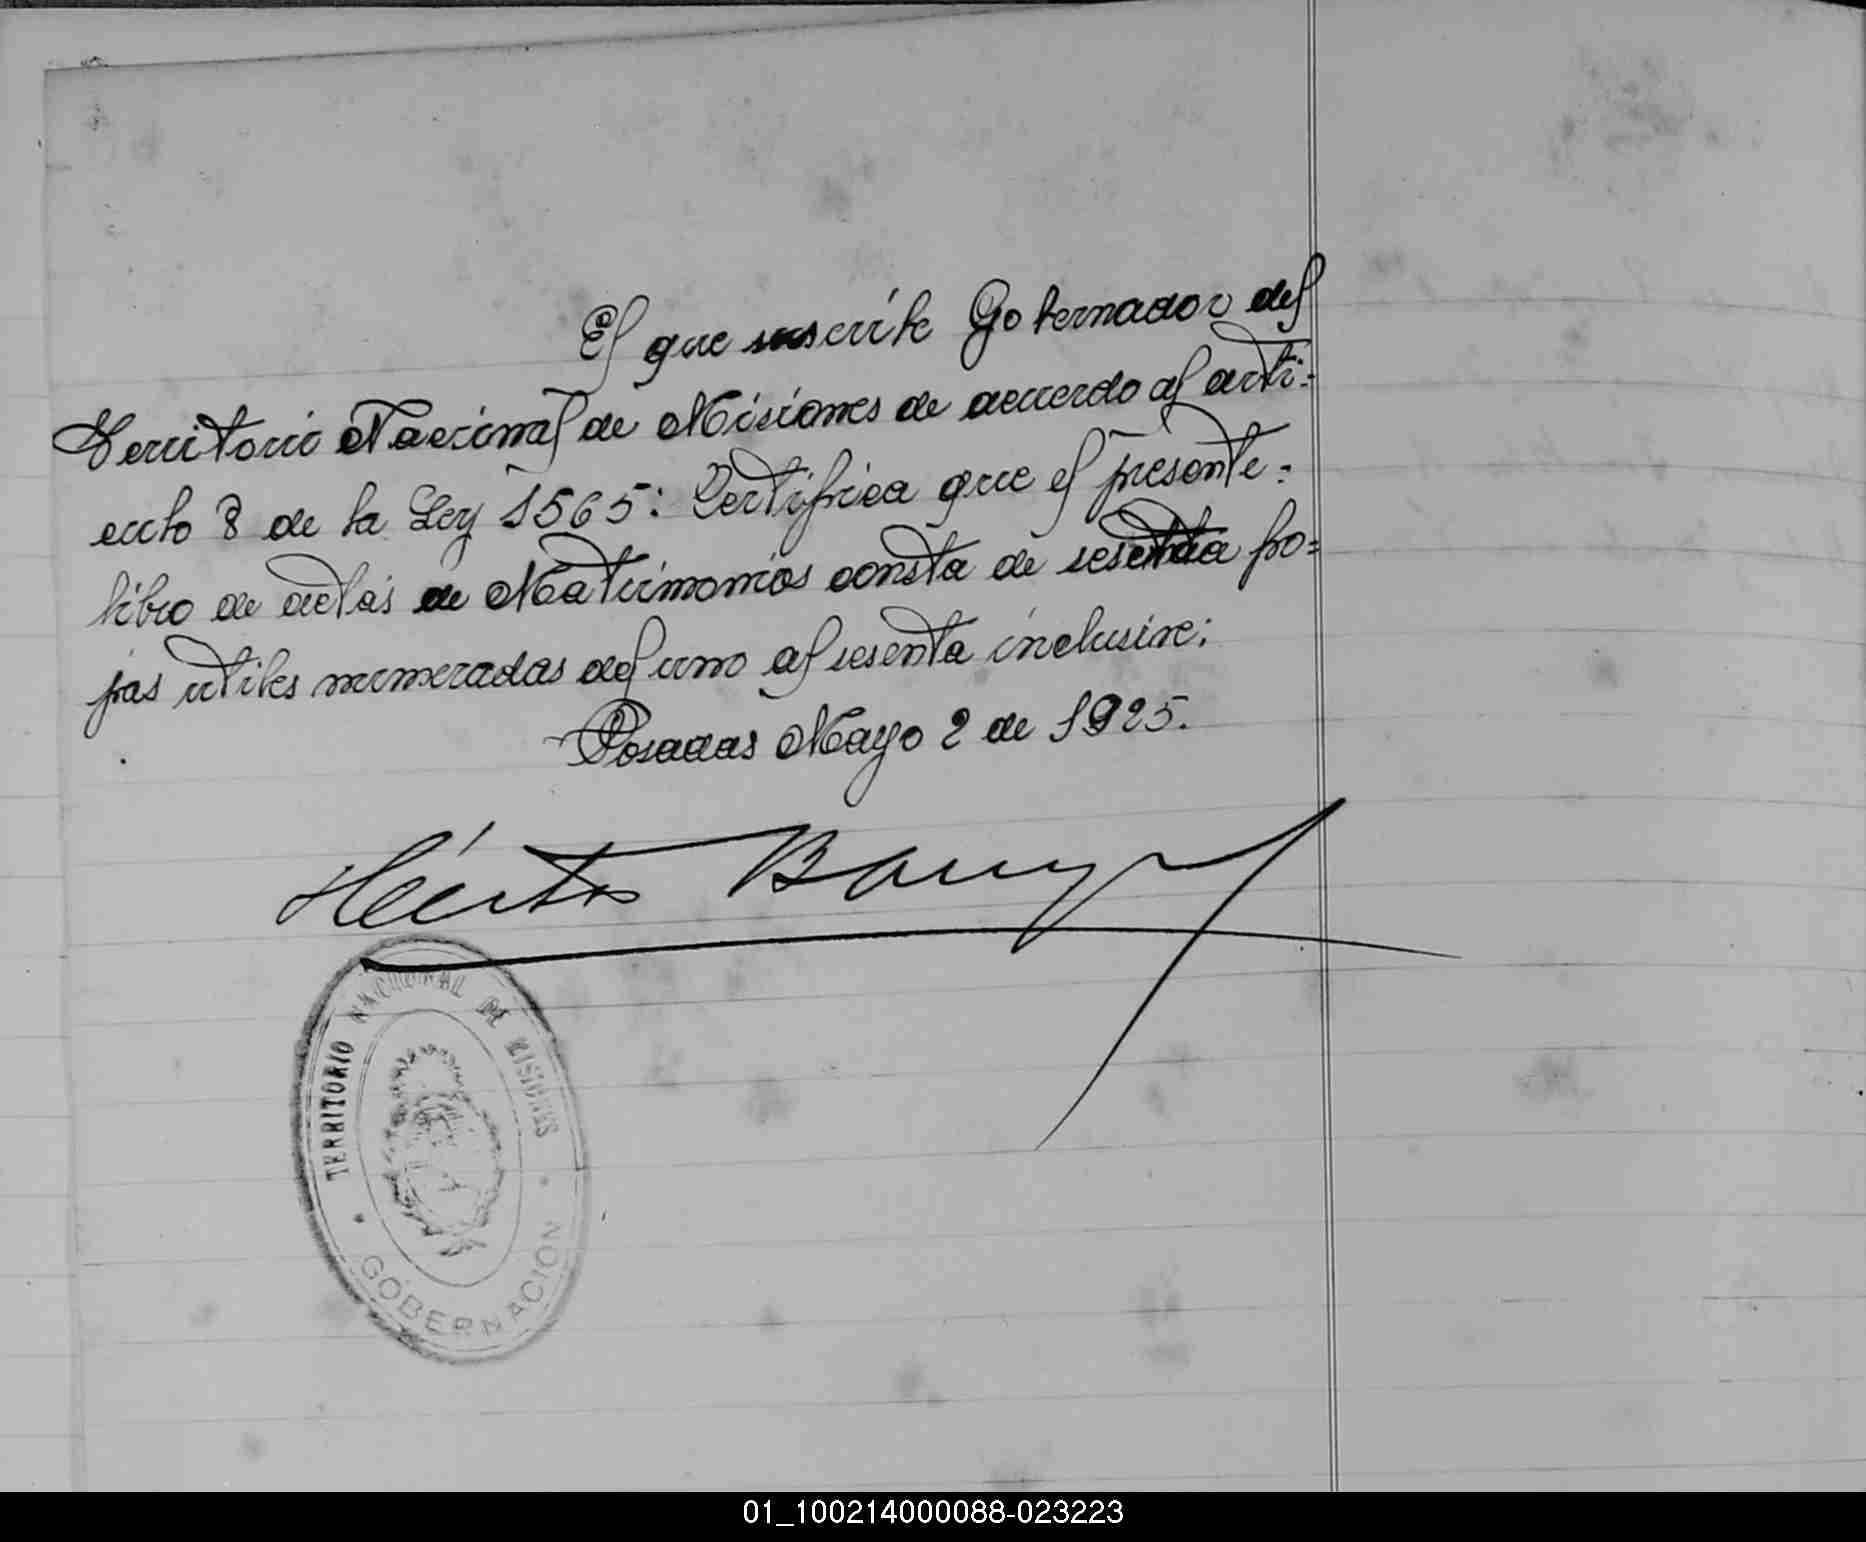 El que suscribe Gobernador del
Territorio Nacional de Misiones de acuerdo al arti-
culo 8 de la Ley 1565: Certifica que el presente=
libro de actas de Matrimonios consta de sesenta fo=
jas utiles numeradas del uno al sesenta inclusive;
Posadas Mayo 2 de 1925.
Héctor
TERRITORIO NACIONAL DE MISIONES
GOBERNACION
01_100214000088-023223